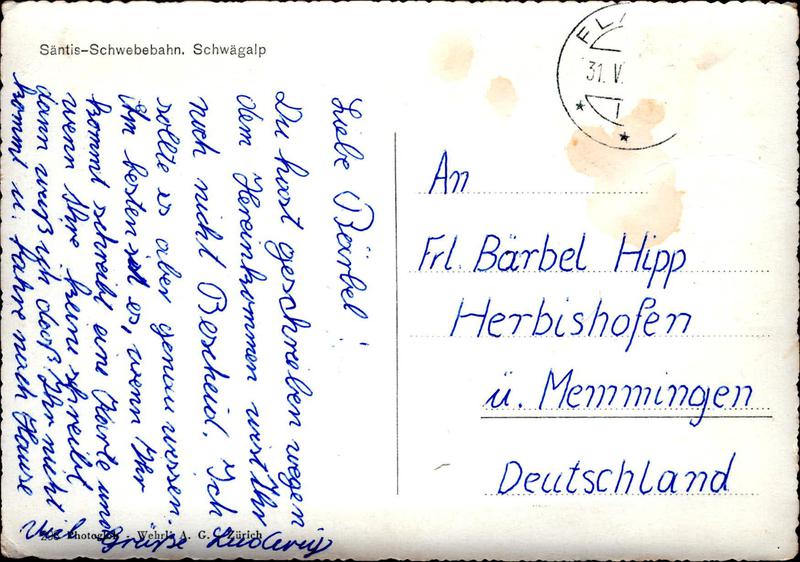 Säntis-Schwebebahn. Schwägalp
Liebe Bärbel!
Du hast geschrieben wegen
dem Hereinkommen wist Ihr
noch nicht Bescheid. Ich
sollte es aber genau wissen.
Am besten ist es, wenn Ihr
kommt schreibt eine Karte und
wenn Ihre keine schreibt
dann weiß ich daß Ihr nicht
kommt u. fahre nach Hause
Viel Grüße Ludwig
Photoglob - Wehrli A. G. Zürich
FL
31. V
An
Frl. Bärbel Hipp
Herbishofen
ü. Memmingen
Deutschland